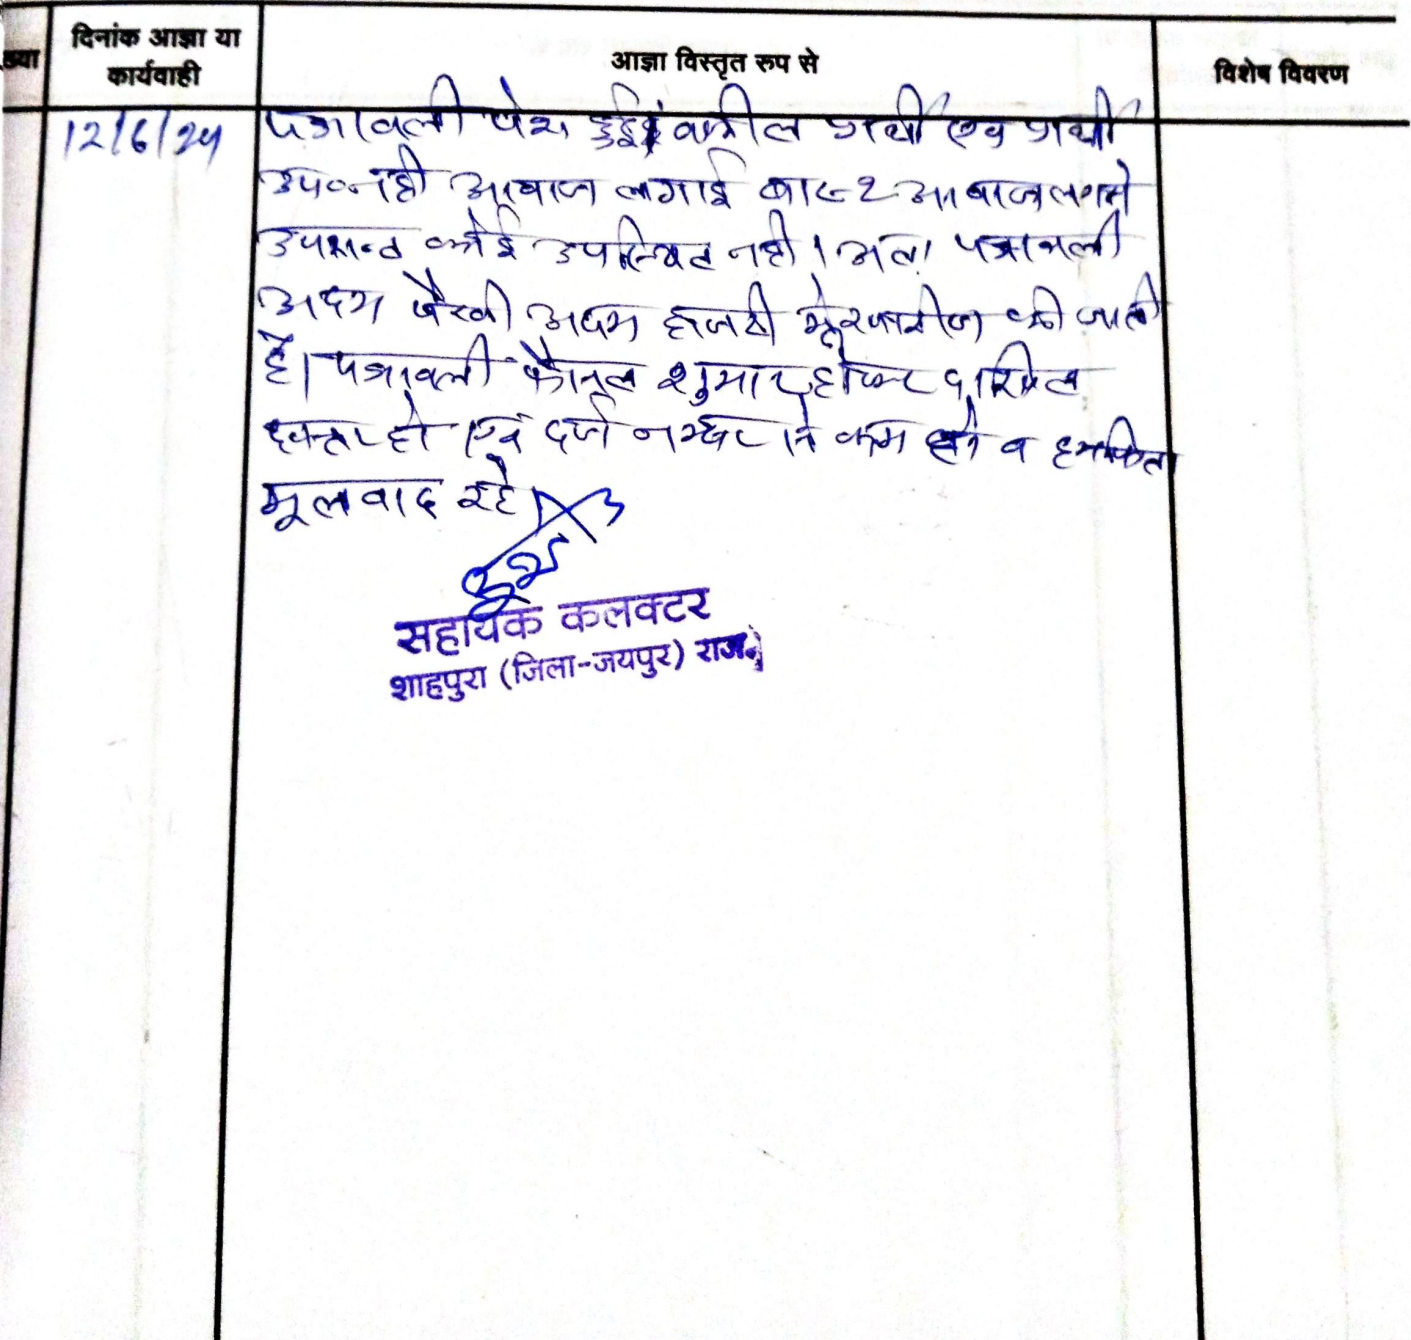 ख्या
दिनांक आज्ञा या
कार्यवाही
आज्ञा विस्तृत रुप से
विशेष विवरण
12/6/24
पत्रावली पेश हुई। वकील प्रार्थी एवं प्रार्थी
उप०नही आवाज लगाई बार २ आवाज लगाने
उपरान्त कोई उपस्थित नही। अतः पत्रावली
अदम पैरवी अदम हाजरी में खारीज की जाती
है। पत्रावली फैसल शुमार होकर दाखिल
दफ्तर हो एवं दर्ज नम्बर से कम हो व
मूलवाद रहे।
सहायक कलक्टर
शाहपुरा (जिला-जयपुर) राज०